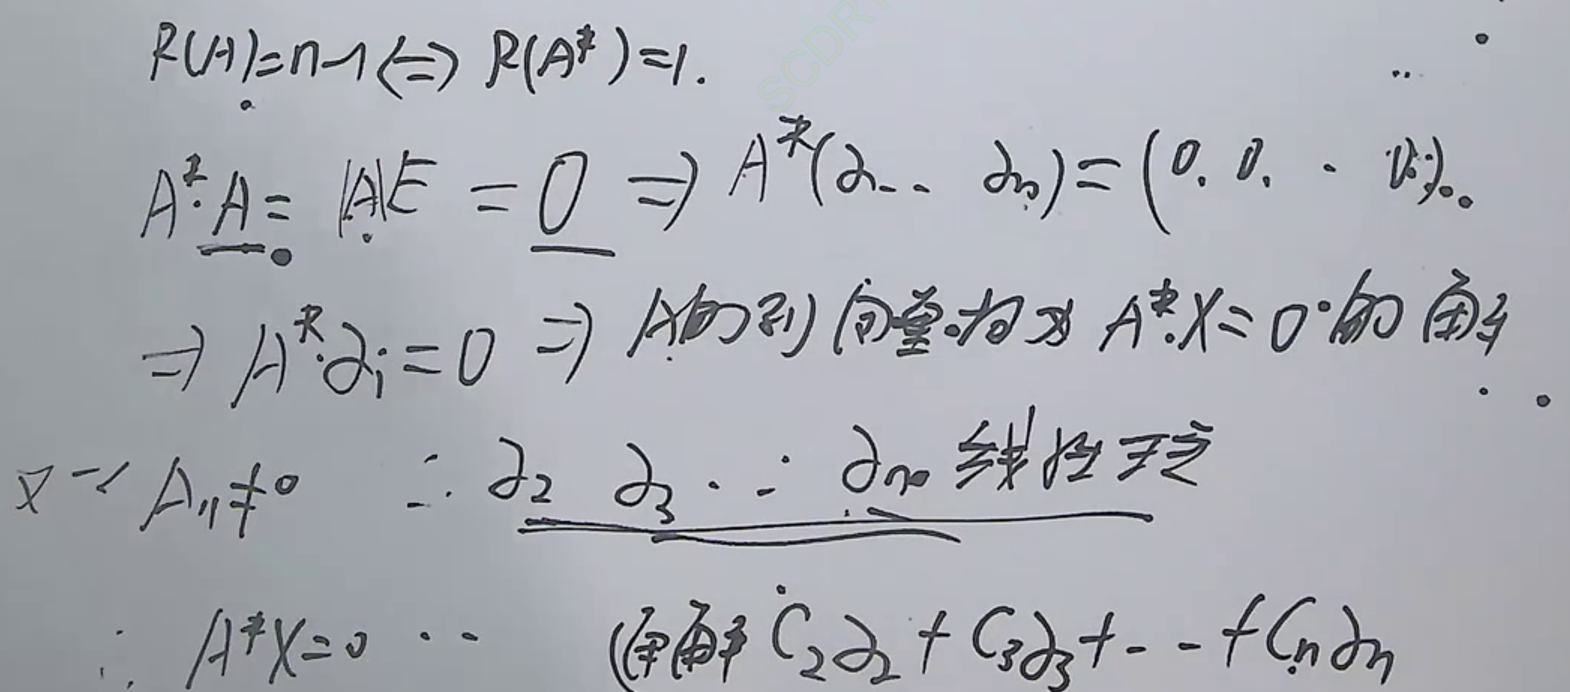 R(A)=n-1⇔R(A*)=1.
A*·A=|A|E=O⇒A*(α... αn)=(0. 0. · 0).
⇒A*αi=0⇒A的列向量均为A*X=0的解
又∵A11≠0 ∴α2 α3 ... αn 线性无关
∴A*X=0 ·· 通解 C2α2+C3α3+...+Cnαn